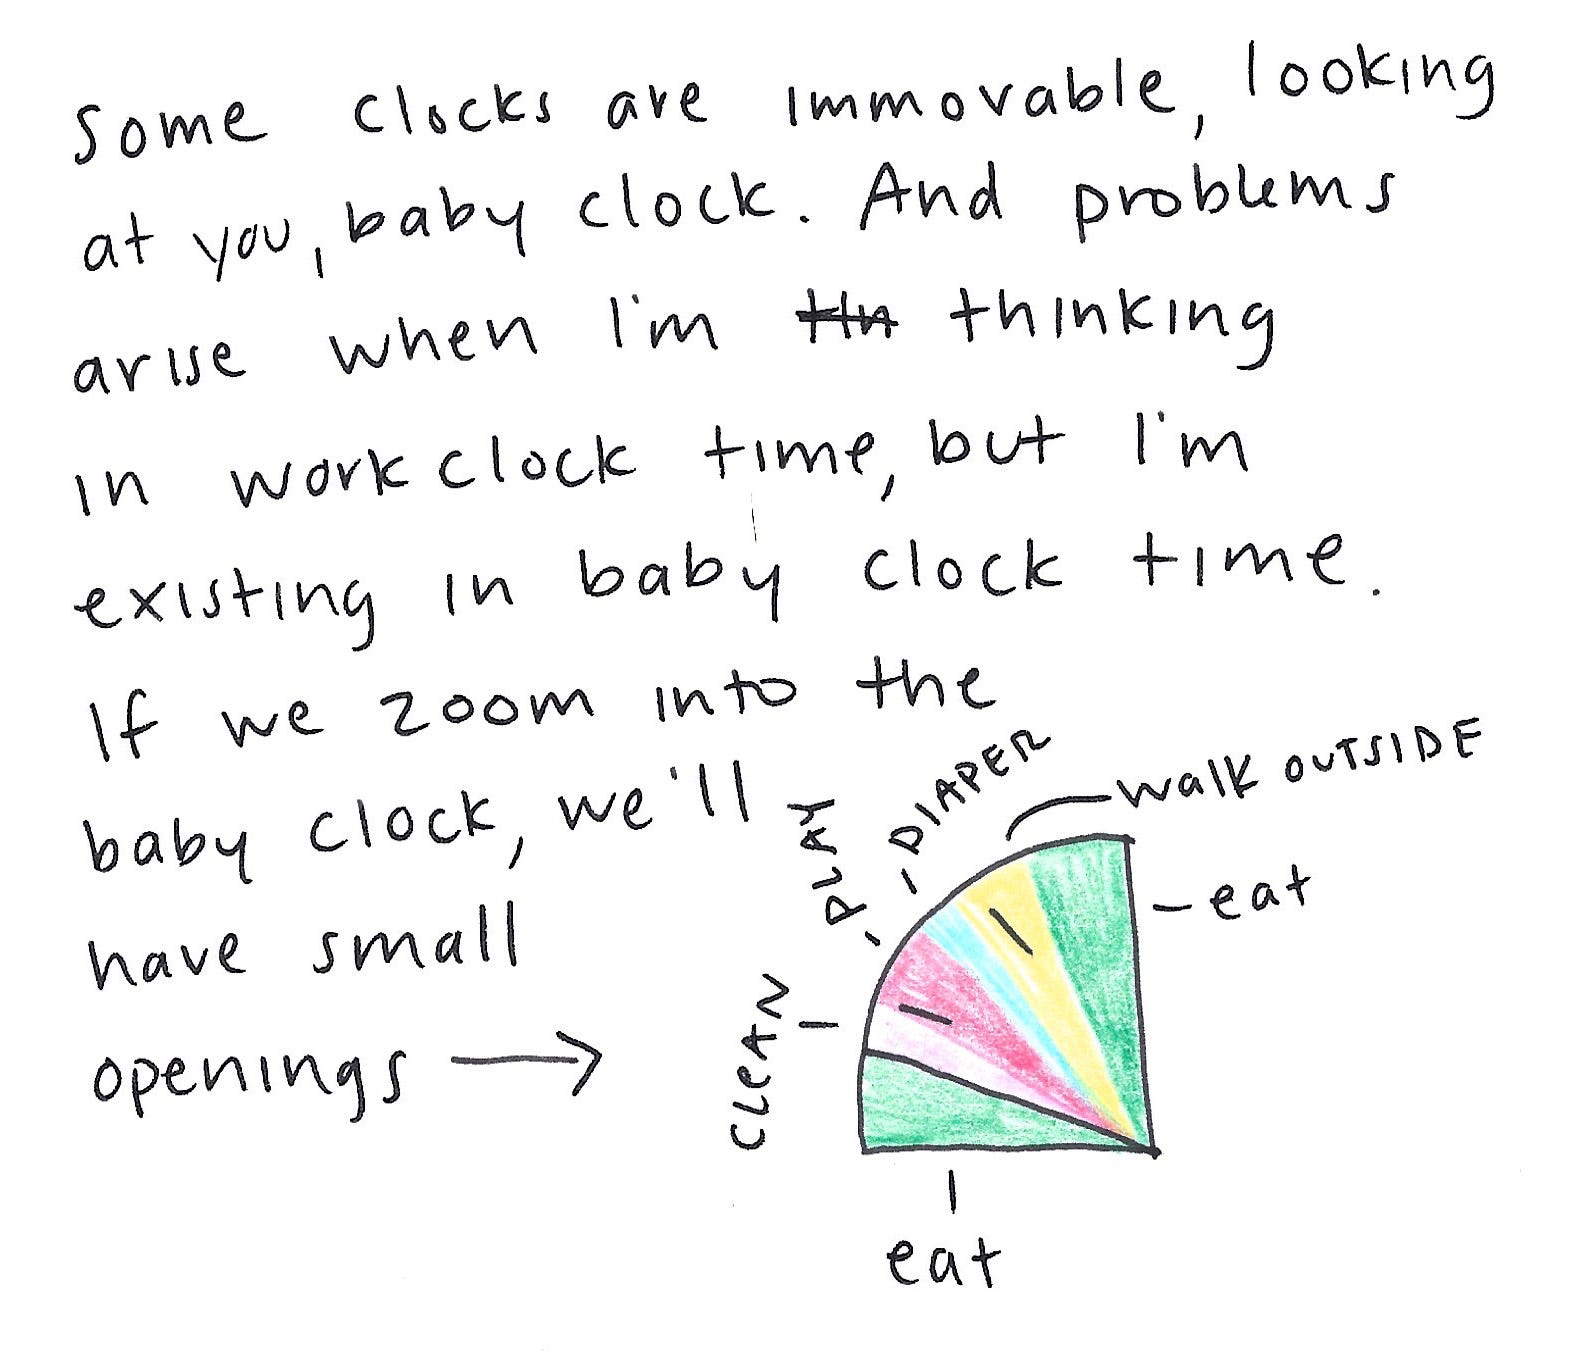 Some clocks are immovable, looking
at you, baby clock. And problems
arise when I'm thin thinking
in work clock time, but I'm
existing in baby clock time.
If we zoom into the
baby clock, we'll
have small
openings →
CLEAN
PLAY
DIAPER
walk OUTSIDE
eat
eat